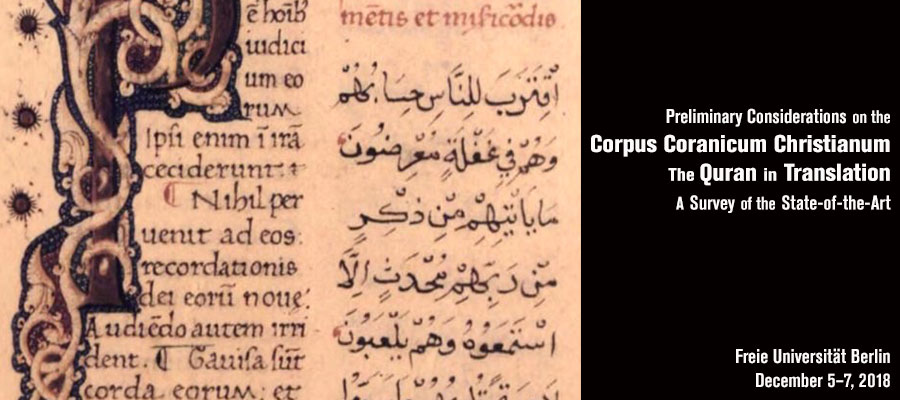 ē hoīb
iudici
um eo
rum
Ipsi enim ī irā
ceciderunt
¶ Nihil per
uenit ad eos:
recordationis
dei eorū noue:
Audiēdo autem irri
dent. ¶ Gauisa sūt
corda eorum: et
mētis et misicōdis
ٱقْتَرَبَ لِلنَّاسِ حِسَابُهُمْ
وَهُمْ فِي غَفْلَةٍ مُعْرِضُونَ
مَا يَأْتِيهِمْ مِنْ ذِكْرٍ
مِنْ رَبِّهِمْ مُحْدَثٍ اِلَّا
اسْتَمَعُوهُ وَهُمْ يَلْعَبُونَ
Preliminary Considerations on the
Corpus Coranicum Christianum
The Quran in Translation
A Survey of the State-of-the-Art
Freie Universität Berlin
December 5–7, 2018